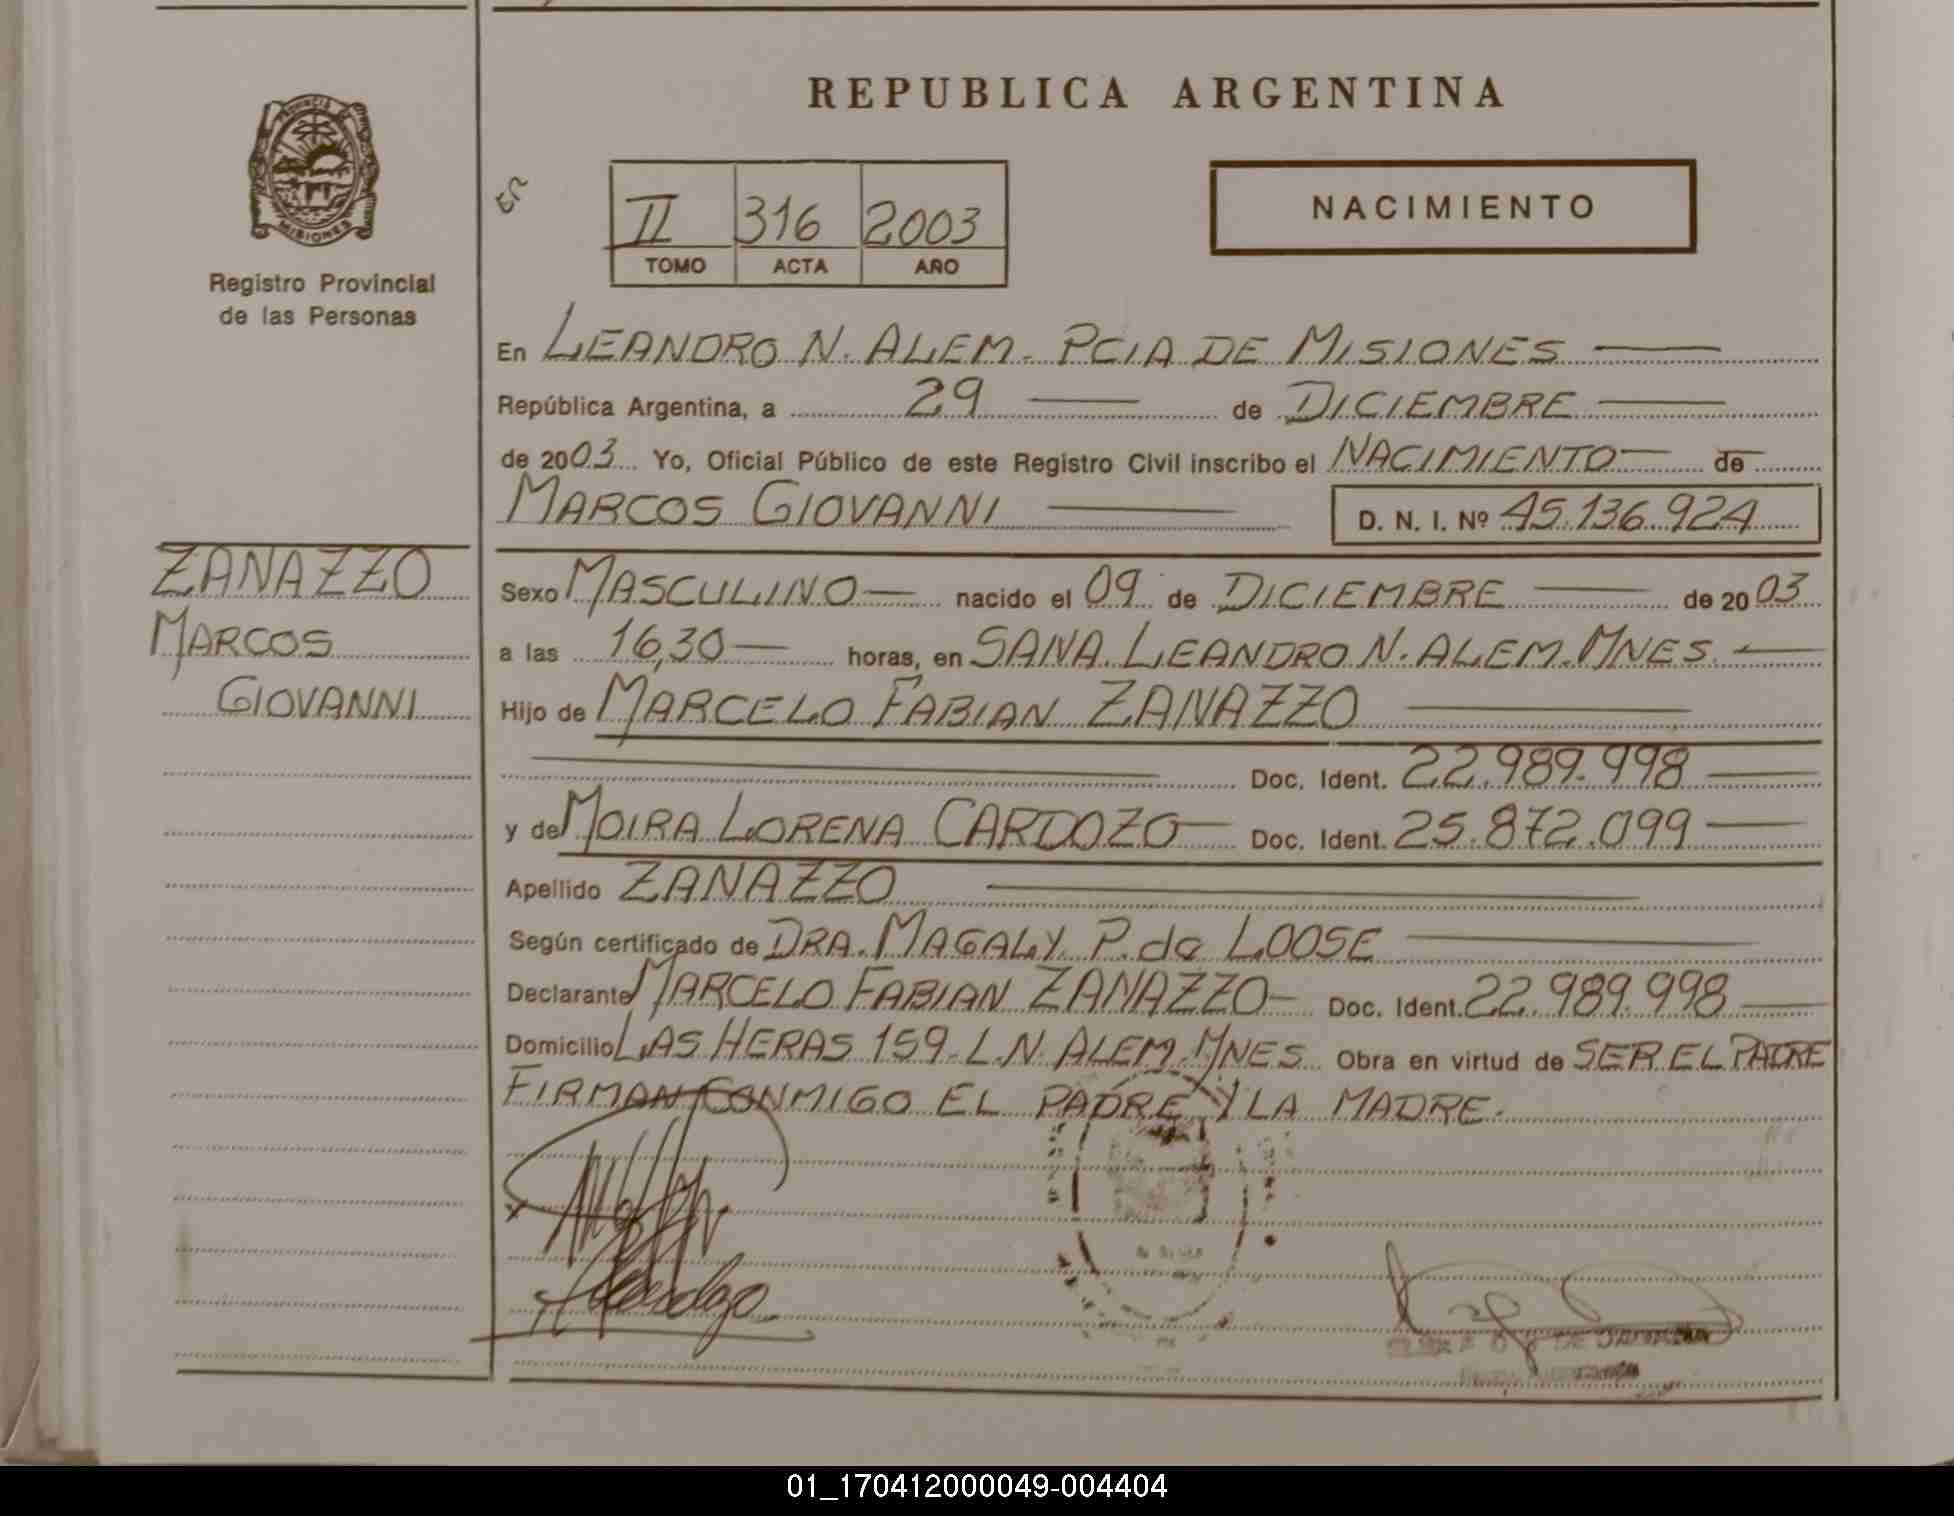 REPUBLICA ARGENTINA
PROVINCIA
MISIONES
Registro Provincial
de las Personas
II 316 2003
TOMO ACTA AÑO
NACIMIENTO
En LEANDRO N. ALEM. PCIA DE MISIONES
República Argentina, a 29 de DICIEMBRE
de 2003 Yo, Oficial Público de este Registro Civil inscribo el NACIMIENTO de
MARCOS GIOVANNI D. N. I. Nº 45.136.924
ZANAZZO
MARCOS
GIOVANNI
Sexo MASCULINO nacido el 09 de DICIEMBRE de 2003
a las 16,30 horas, en SANA. LEANDRO N. ALEM. MNES.
Hijo de MARCELO FABIAN ZANAZZO
Doc. Ident. 22.989.998
y de MOIRA LORENA CARDOZO Doc. Ident. 25.872.099
Apellido ZANAZZO
Según certificado de DRA. MAGALY P. de LOOSE
Declarante MARCELO FABIAN ZANAZZO Doc. Ident. 22.989.998
Domicilio LAS HERAS 159. L.N. ALEM. MNES. Obra en virtud de SER EL PADRE
FIRMAN CONMIGO EL PADRE Y LA MADRE.
01_170412000049-004404